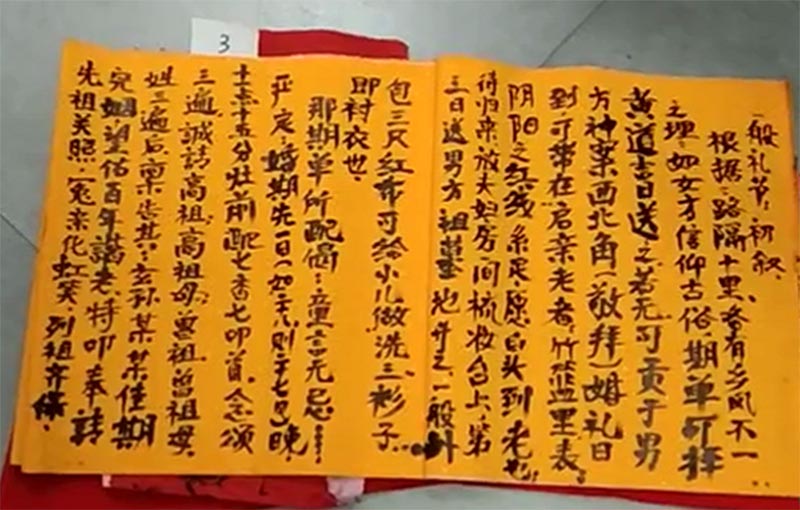 3
一般礼节,初叙.
根据:路隔十里,各有乡风不一
之理:如女方信仰古俗,期单可择
黄道吉日送之,若无可贡于男
方神案西北角(敬拜)婚礼日
到可带在启亲老者,竹篮里.表.
阴阳之红线系足,愿白头到老也
待归来放夫妇房间梳妆台上,第
三日送男方祖 地 之.一般
包三尺红布可给小儿做洗三衫子.
即衬衣也.
那期单所配偈:童言无忌…
严定:婚期先一日(如 八则二十七日)晚
十一点十五分灶前配七香七叩首,念颂
三遍,诚请高祖,高祖母,曾祖,曾祖母
姓三遍后禀告其:玄孙某某佳期
完姻望佑百年谐老,特叩奉请
先祖关照.(冤亲化虹笑,列祖齐 .